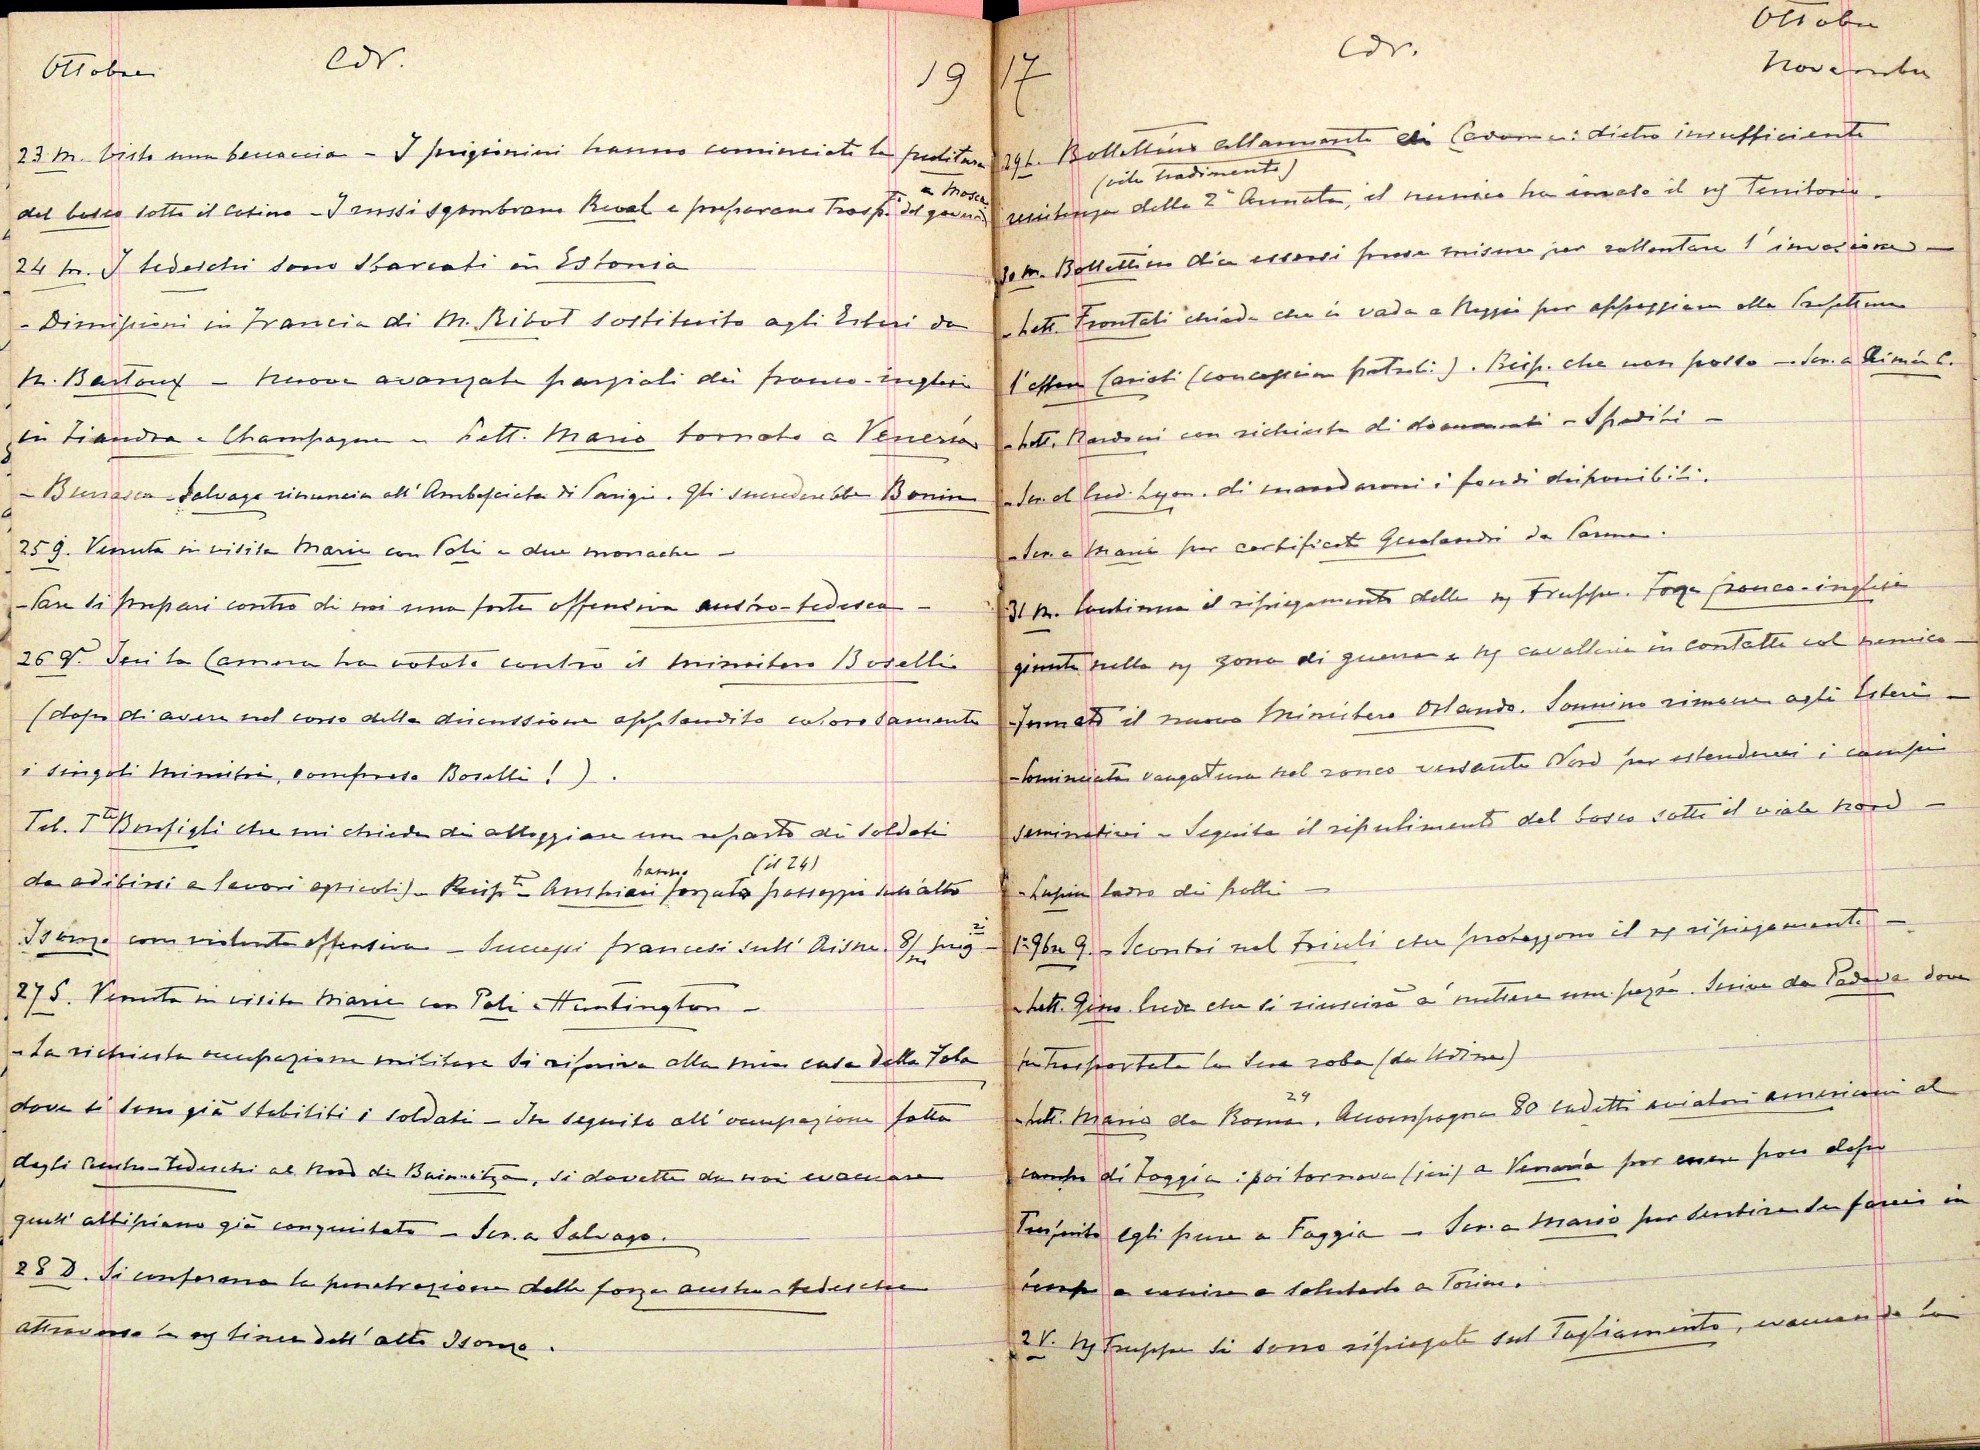 Ottobre
Cdv.
19
23 M. Visto una beccaccia - I prigionieri hanno cominciato la pulitura
a Mosca
del bosco sotto il casino - I russi sgombrano Reval e preparano Trasp.to del governo
24 M. I tedeschi sono sbarcati in Estonia
- Dimissioni in Francia di M. Ribot sostituito agli Esteri da
M. Bartoux - Nuove avanzate parziali dei franco-inglesi
in Fiandra e Champagne - Lett. Mario tornato a Venerìa
- Burrasca - Salvago rinuncia all'Ambasciata di Parigi. Gli succederebbe Bonin
25 G. Venuta in visita Marie con Poli e due monache -
- Pare si prepari contro di noi una forte offensiva austro-tedesca -
26 V. Ieri la Camera ha votato contro il Ministero Boselli
(dopo di avere nel corso della discussione applaudito calorosamente
i singoli Ministri, compreso Boselli!).
Tel. Tte Bonfigli che mi chiede di alloggiare un reparto di soldati
hanno (il 24)
da adibirsi a lavori agricoli) - Risp.to - Austriaci forzato passaggi sull'alto
Isonzo con violenta offensiva - Successi francesi sull'Aisne. 8/m prig.i -
27 S. Venuta in visita Marie con Poli e Huntington -
- La richiesta occupazione militare si riferiva alla mia casa della Fola
dove si sono già stabiliti i soldati - In seguito all'occupazione fatta
dagli austro-tedeschi al Nord di Bainsitza, si dovette da noi evacuare
quell'altipiano già conquistato - Scr. a Salvago.
28 D. Si conferma la penetrazione delle forze austro-tedesche
attraverso la ns linea dell'alto Isonzo.
17
Cdv.
Ottobre
Novembre
29 L. Bollettino allarmante di Cadorna: dietro insufficiente
(vile tradimento)
resistenza della 2a Armata, il nemico ha invaso il ns Territorio.
30 M. Bollettino dice essersi prese misure per rallentare l'invasione -
- Lett. Frontali chiede che io vada a Reggio per appoggiare alla Prefettura
l'affare Cariati (concessioni). Risp. che non posso - Scr. a Rimini C.
- Lett. Nardoni con richiesta di documenti - Spediti -
- Scr. al Cred. Lyon. di mandarmi i fondi disponibili.
- Scr. a Marie per certificato Gualandri da Parma.
31 M. Continua il ripiegamento delle ns Truppe. Forze franco-inglesi
giunte nella ns zona di guerra e ns cavalleria in contatto col nemico -
- Formato il nuovo Ministero Orlando. Sonnino rimane agli Esteri -
- Cominciata vangatura nel ronco versante Nord per estenderci i campi
seminativi - Seguita il ripulimento del bosco sotto il viale Nord -
- Lupin ladro di polli -
1° 9bre G. - Scontri nel Friuli che proteggono il ns ripiegamento -
- Lett. Gino. Crede che si riuscirà a mettere una pezza. Scrive da Padova dove
fu trasportata la sua roba (da Udine)
29
- Lett. Mario da Roma. Accompagna 80 cadetti aviatori americani al
campo di Foggia: poi tornava (ieri) a Venaria per essere poco dopo
Trasferito egli pure a Foggia - Scr. a Mario per sentire se faccio in
tempo a venire a salutarlo a Torino.
2 V. Ns Truppe si sono ripiegate sul Tagliamento, evacuando la